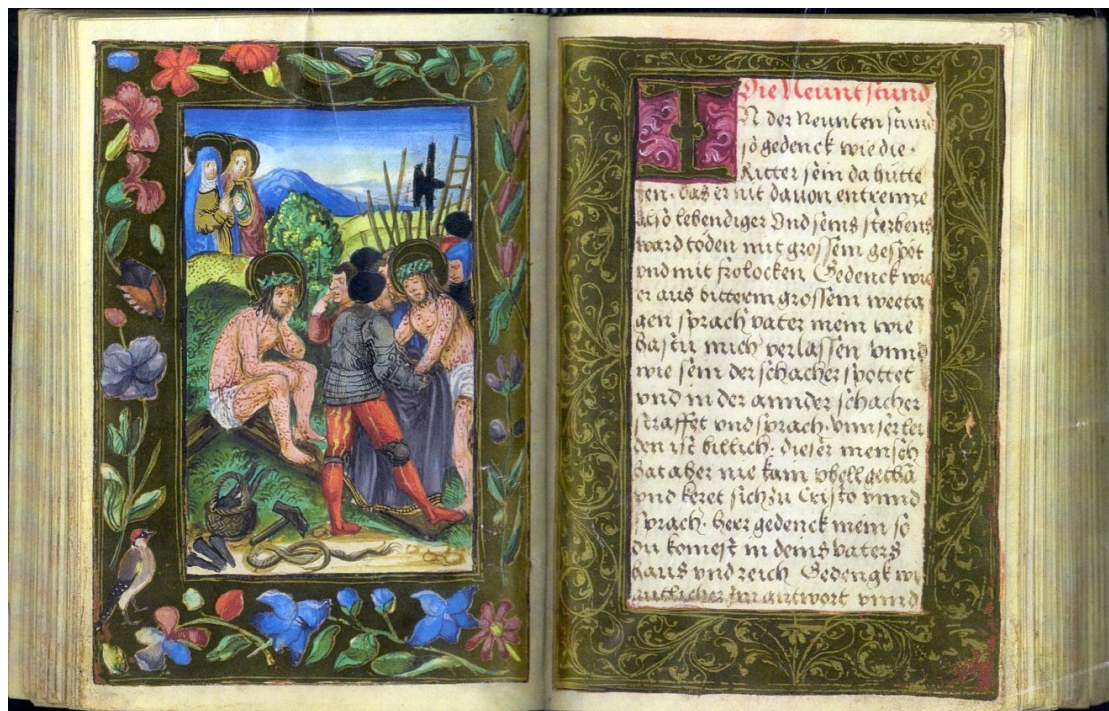 Die Neunt stund
IN der Neunten stund
so gedenck wie die
Ritter sein da hütte
ten. das er nit davon entrenne
also lebendiger Vnd seins sterbens
ward töden mit grossem gespöt
vnd mit frolocken Gedenck wie
er aus bitterm grossem weeta
gen sprach vater mein wie
hastu mich verlassen vnnd
wie sein der schacher spottet
vnd in der annder schacher
straffet vnd sprach vnnser lei
den ist billich. dieser mensch
hat aber nie kain vbell gethā
vnd keret sich zu Cristo vnnd
sprach. herr gedenck mein so
du komest in deins vaters
haus vnd reich Gedengk wi
antwort vnnd